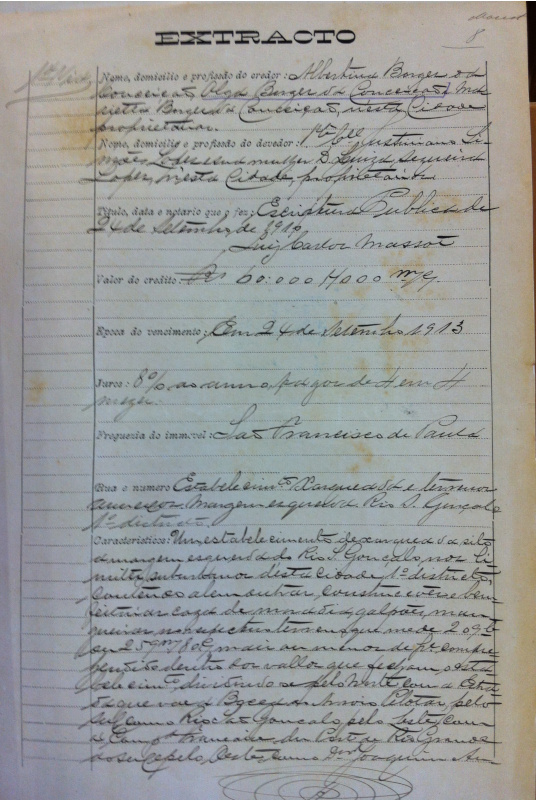 8
EXTRACTO
Nome, domicilio e profissão do credor: Albertina Borges da
Conceição, Olga Borges da Conceição, Ma
rietta Borges da Conceição, nesta Cidade
proprietarias.
Nome, domicilio e profissão do devedor: Justiniano Si
mões Lopes e sua mulher D. Luiza Sequeira
Lopes, nesta Cidade, proprietarios
Titulo, data e notario que o fez: Escriptura Publica de
24 de Setembro de 1910
Luiz Carlos Massot
Valor do credito: Rs 60:000$000
Epoca do vencimento: Em 24 de Setembro 1913
Juros: 8% ao anno, pagos de 4 em 4
mezes.
Freguezia do immovel: São Francisco de Paula
Rua e numero Estabelecimto Xarqueada e terrenos
annexos. Margem esquerda Rio S. Gonçalo
1º districto
Caracteristicos: Um estabelecimento de xarqueada sito
a margem esquerda do Rio S. Gonçalo, nos li
mites suburbanos d'esta cidade, 1º districto,
contendo alem outras, construcções e bem
feitorias caza de moradia, galpões, man
gueiras, respectivo terreno que mede
mais ou menos de compre
hendidos dentro dos vallos que fecham o esta
belecimto, dividindo-se pelo Norte com a Estra
da que vae a Boca do Arroio Pelotas, pelo
Sul com o Rio São Gonçalo, pelo Este, com
a Compa Franceza do Porto do Rio Grande
do Sul e pelo Oeste, com o Dr Joaquim